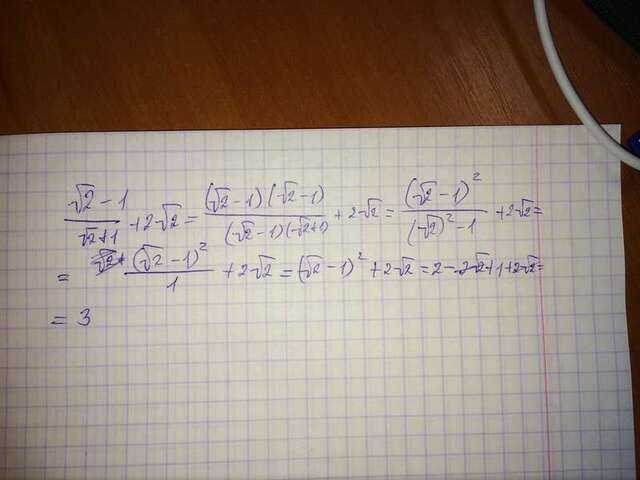 (√2 - 1)/(√2 + 1) + 2√2 = ((√2 - 1)(√2 - 1))/((√2 - 1)(√2 + 1)) + 2√2 = (√2 - 1)²/((√2)² - 1) + 2√2 =
= (√2 - 1)²/1 + 2√2 = (√2 - 1)² + 2√2 = 2 - 2√2 + 1 + 2√2 =
= 3